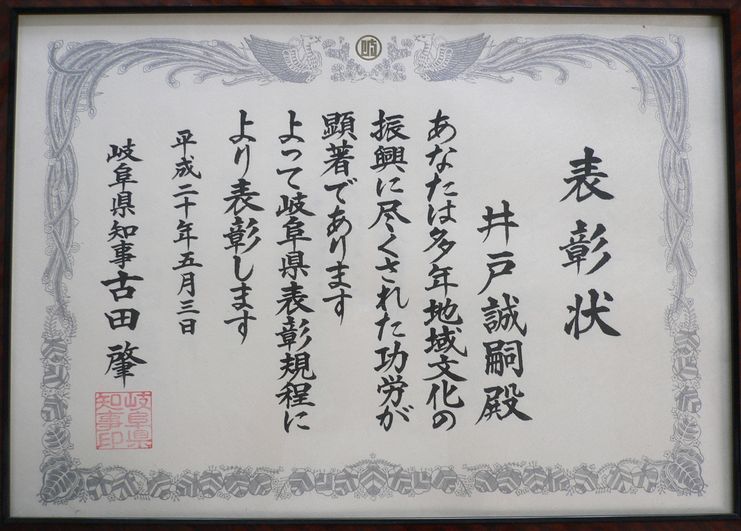 岐
表彰状
井戸誠嗣殿
あなたは多年地域文化の
振興に尽くされた功労が
顕著であります
よって岐阜県表彰規程に
より表彰します
平成二十年五月三日
岐阜県知事古田肇
岐阜県
知事印